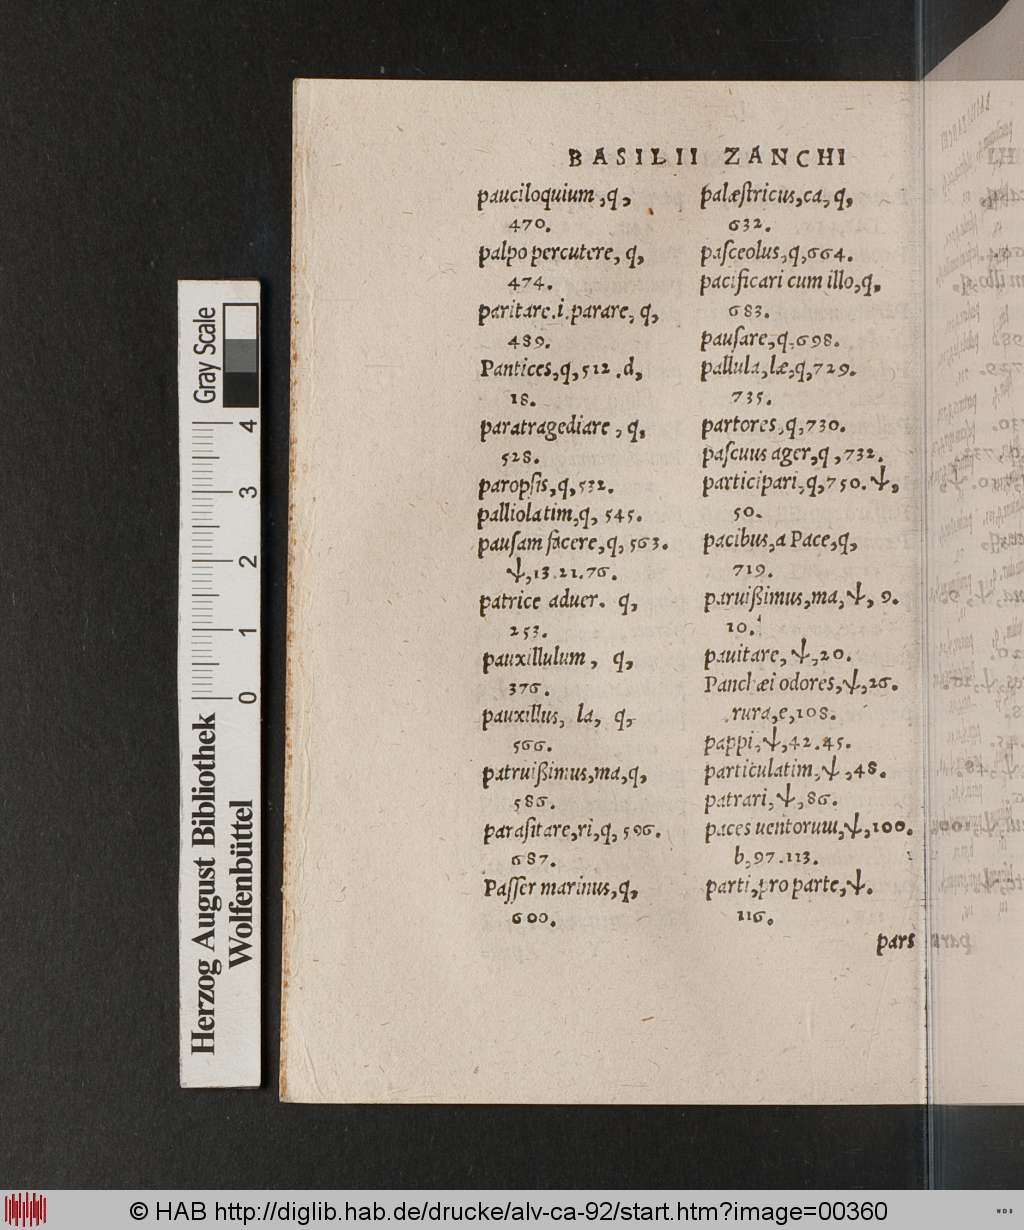 BASILII ZANCHI
pauciloquium, q,
470.
palpo percutere, q,
474.
paritare.i.parare, q,
489.
Pantices, q, 512.d,
18.
paratragediare, q,
528.
paropſis, q, 532.
palliolatim, q, 545.
pauſam facere, q, 563.
ψ, 13.21.76.
patrice aduer. q,
253.
pauxillulum, q,
376.
pauxillus, la, q,
566.
patruißimus, ma, q,
586.
paraſitare, ri, q, 596.
687.
Paſſer marinus, q,
600.
palæſtricus, ca, q,
632.
paſceolus, q, 664.
pacificari cum illo, q,
683.
pauſare, q, 698.
pallula, læ, q, 729.
735.
partores, q, 730.
paſcuus ager, q, 732.
participari, q, 750. ψ,
50.
pacibus, a Pace, q,
719.
paruißimus, ma, ψ, 9.
10.
pauitare, ψ, 20.
Panchæi odores, ψ, 26.
rura, e, 108.
pappi, ψ, 42.45.
particulatim, ψ, 48.
patrari, ψ, 86.
paces uentoruм, ψ, 100.
b, 97.113.
parti, pro parte, ψ.
116.
pars
Gray Scale
4 3 2 1 0
Herzog August Bibliothek
Wolfenbüttel
© HAB http://diglib.hab.de/drucke/alv-ca-92/start.htm?image=00360